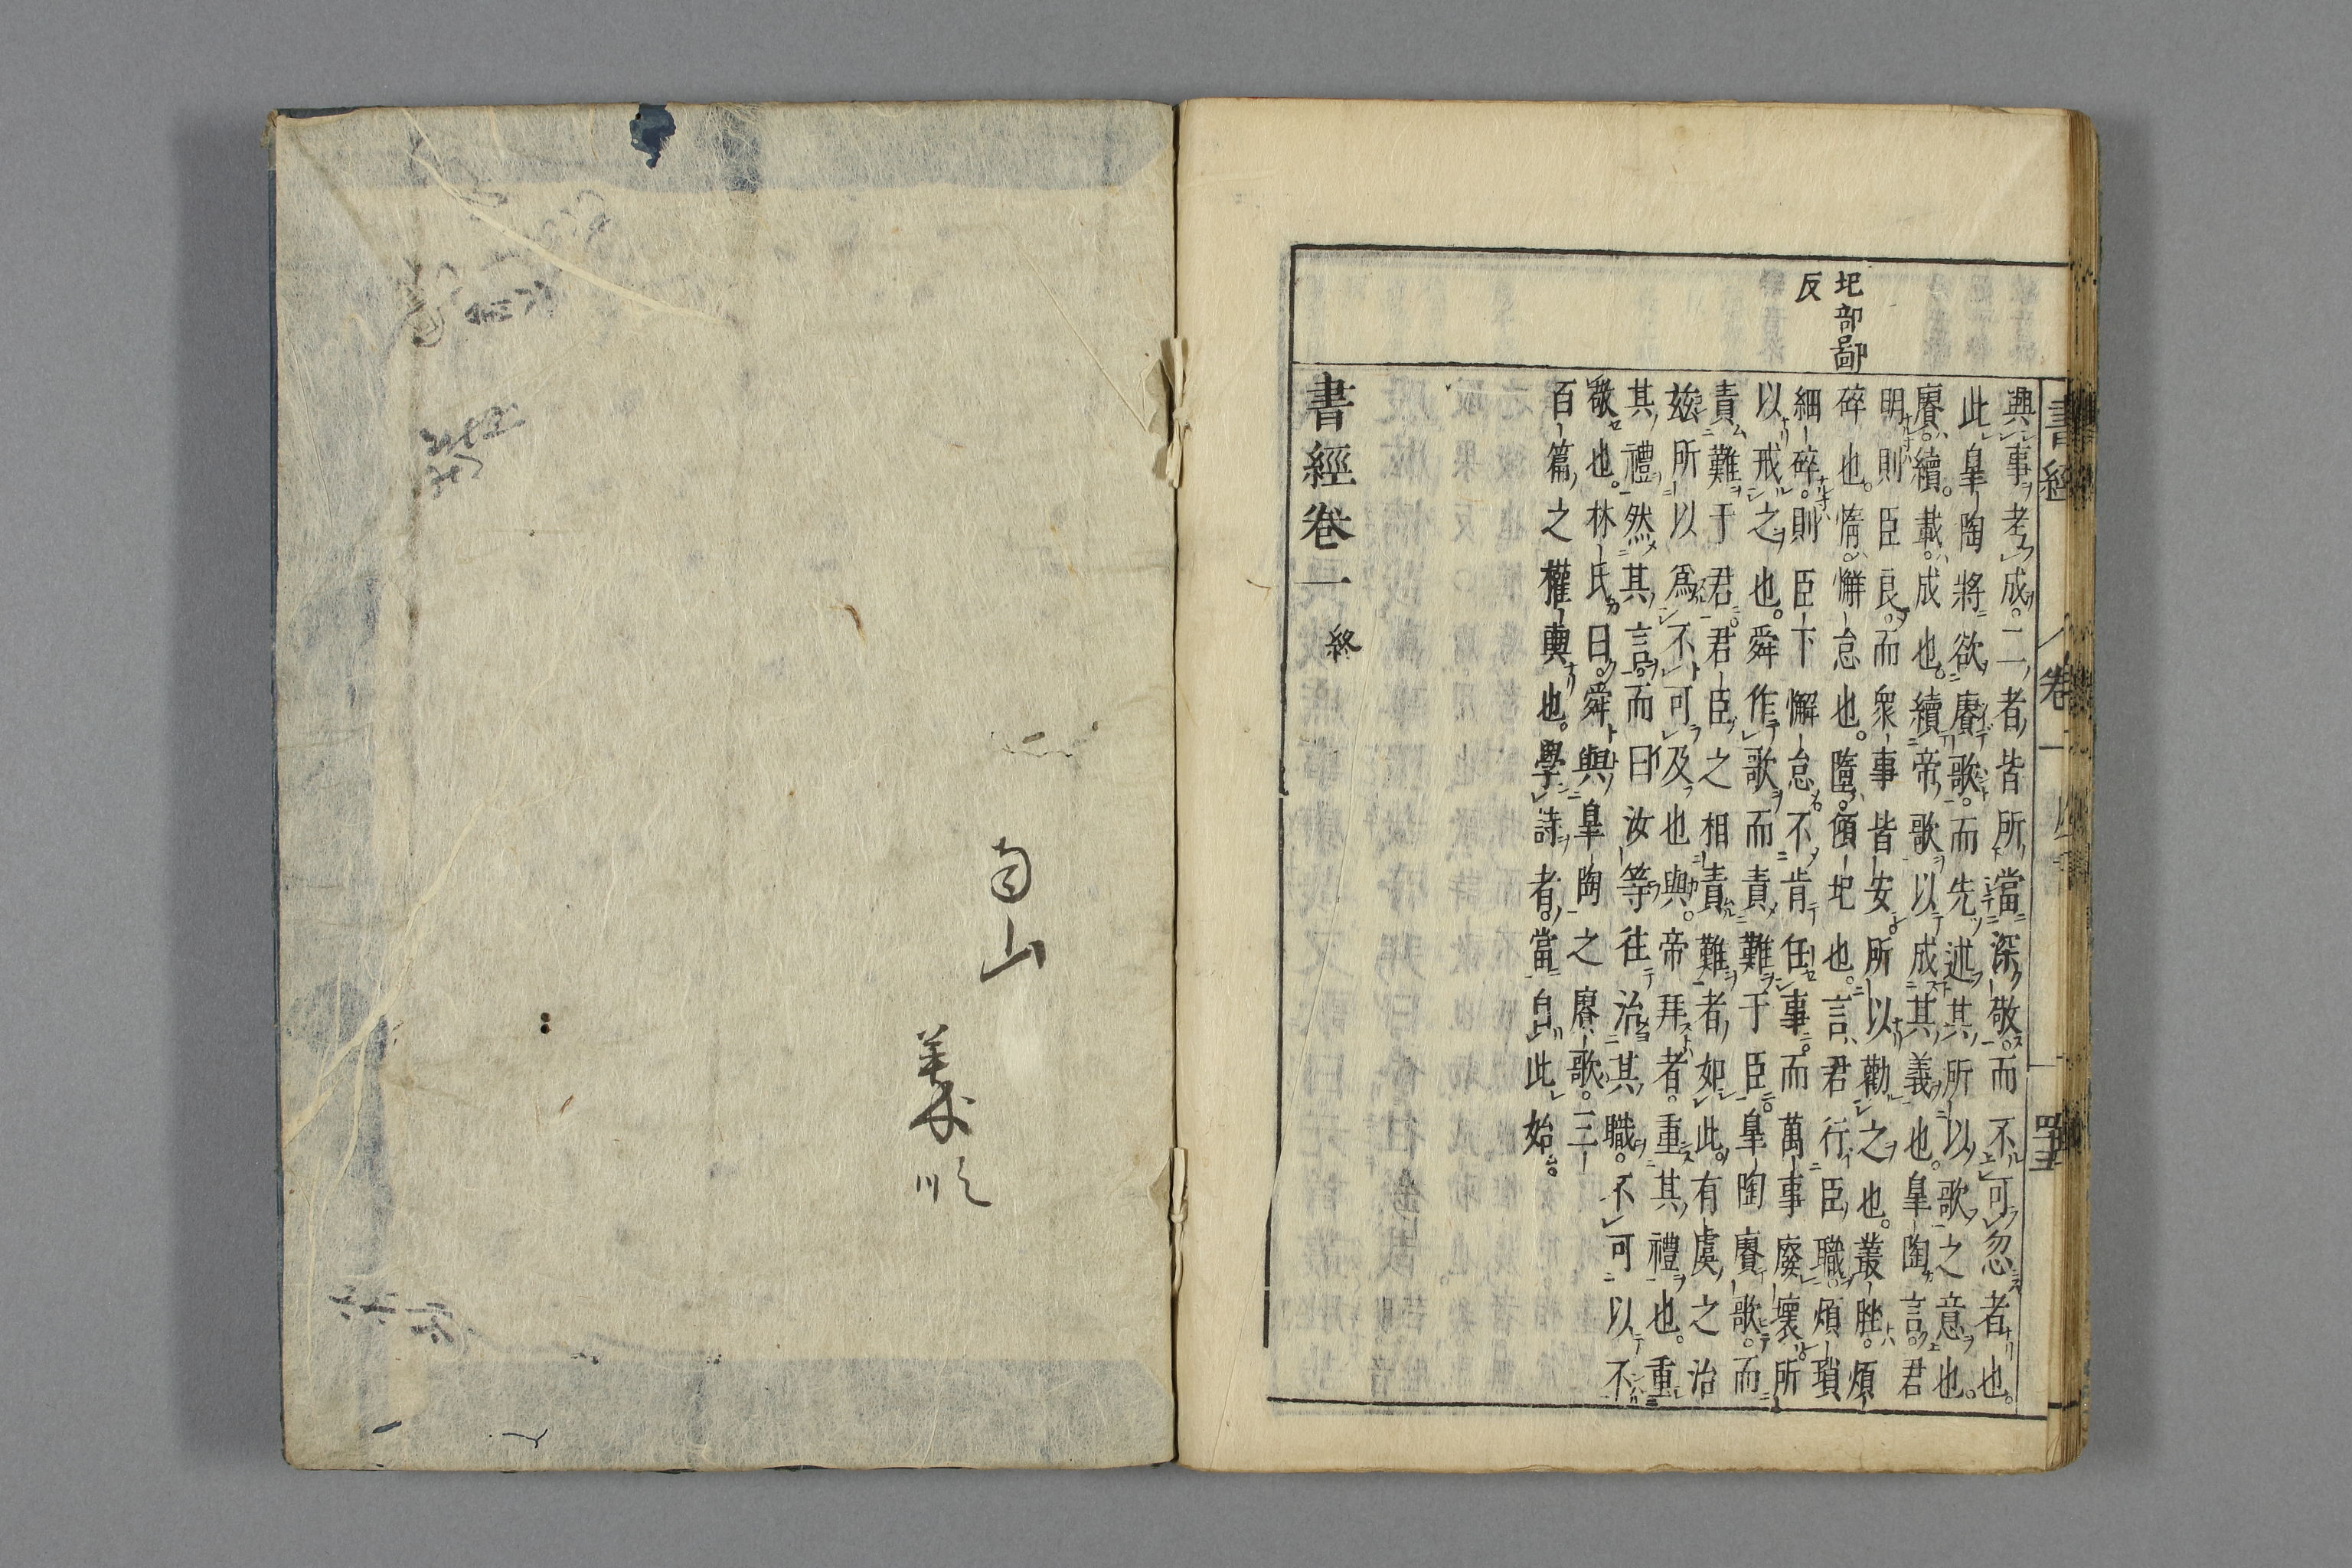 圯部鄙
反
興事考成二者皆所當深敬而不可忽者也。
此皐陶將欲賡歌。而先述其所以歌之意也。
賡續。載成也。續帝歌以成其義也。皐陶言君
明則臣良。而衆事皆安。所以勸之也。叢脞。煩
碎也。惰。懈怠也。墮。傾圯也。言君行臣職。煩瑣
細碎。則臣下懈怠不肯任事。而萬事廢壞。所
以戒之也。舜作歌而責難于臣。皐陶賡歌。而
責難于君。君臣之相責難者如此。有虞之治
玆所以爲不可及也與。帝拜者。重其禮也。重
其禮然其言。而曰汝等往治其職。不可以不
敬也。林氏曰。舜與皐陶之賡歌。三
百篇之權輿也。學詩者。當自此始。
書經卷一 終
書經 卷一 四十三
南山
義順